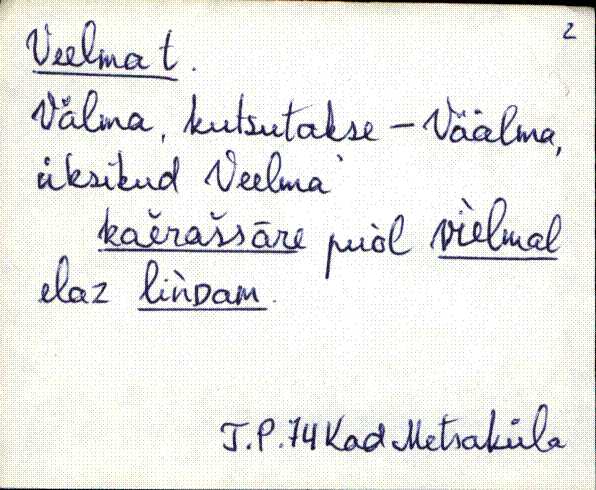 2
Veelma t.
Välma, kutsutakse – Väälma,
üksikud Veelma
kaèrašsāre puol vìelmal
elaz lìnDam.
J.P. 74 Kad Metsaküla